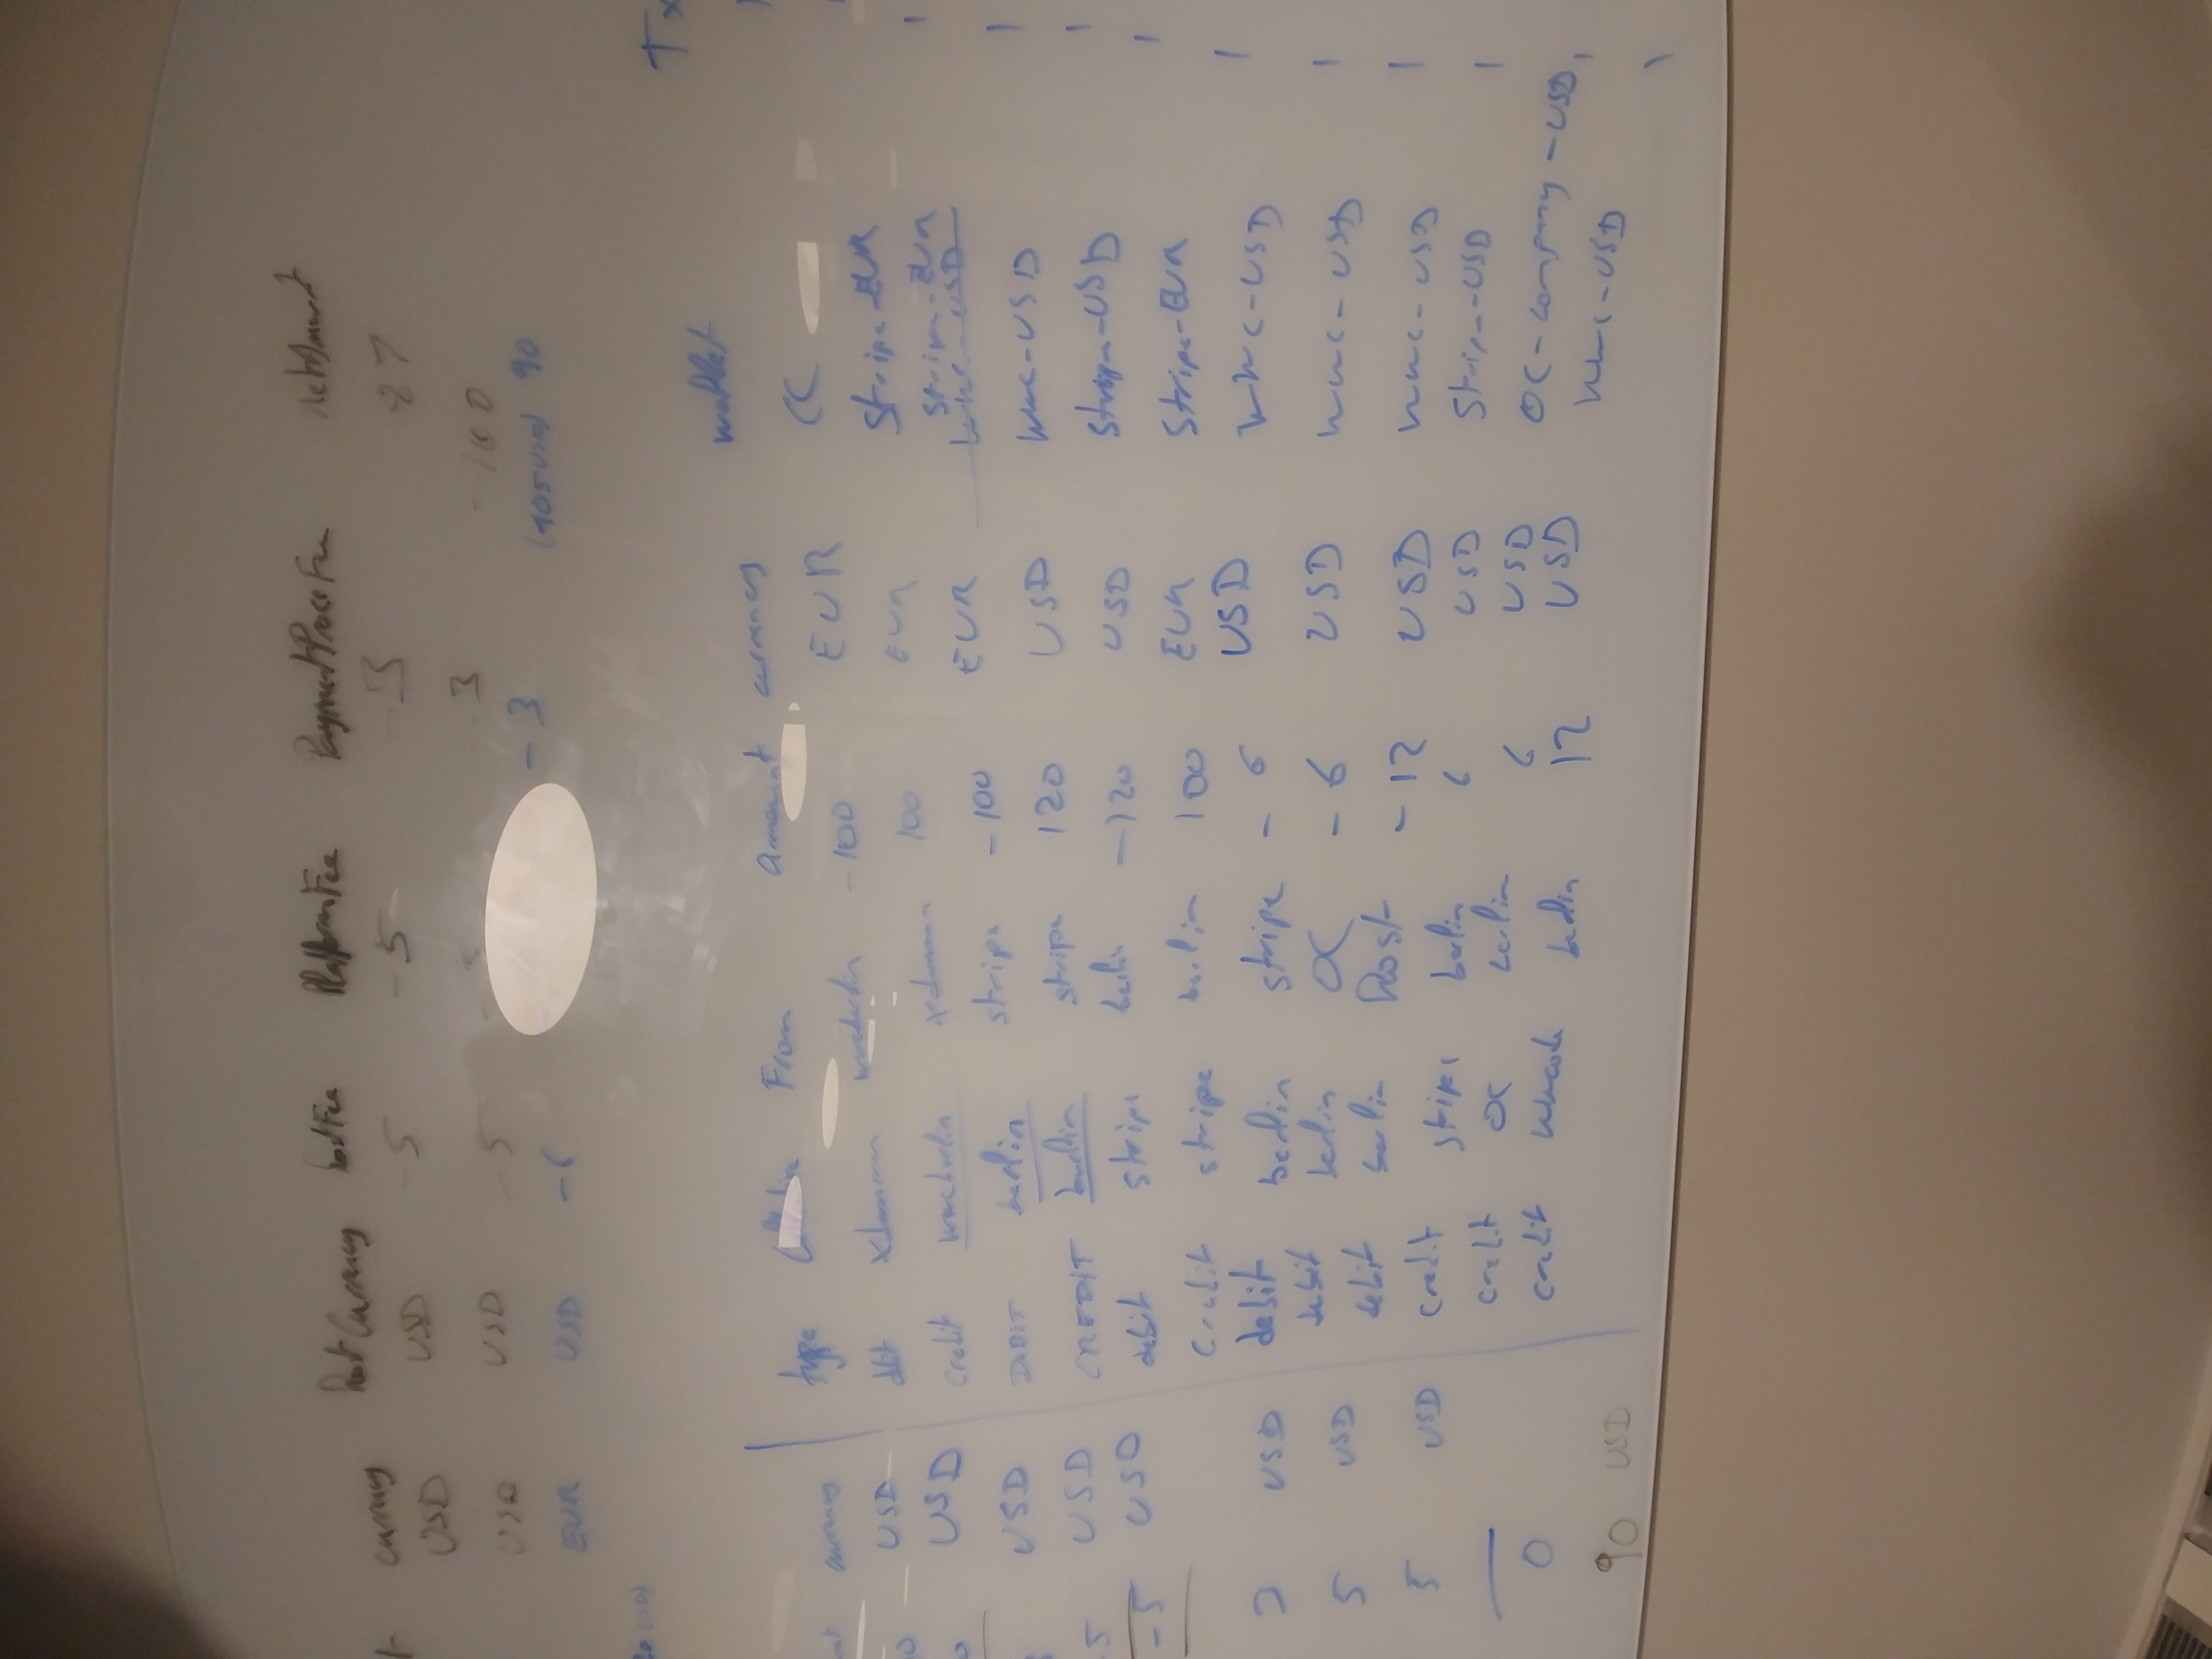 currency Host Currency hostFee PlatformFee PaymentProcFee netAmount
USD USD -5 -5 -3 87
USD USD -5 -5 -3 -100
EUR USD -6 -3 (105 USD) 90
Tx
type From Amount currency wallet
currency
debit xdamman wwcberlin -100 EUR CC
USD
credit wwcberlin xdamman 100 EUR Stripe-EUR
USD
DEBIT berlin stripe -100 EUR Stripe-EUR
USD
CREDIT berlin stripe 120 USD wwc-USD
-5 USD
debit stripe berlin -120 USD Stripe-USD
-5 USD
credit stripe berlin 100 EUR Stripe-EUR
debit berlin stripe -6 USD wwc-USD
USD
debit berlin OC -6 USD wwc-USD
5 USD
debit berlin Host -12 USD wwc-USD
5 USD
credit stripe berlin 6 USD Stripe-USD
credit OC berlin 6 USD OC-company-USD
0
credit wwcode berlin 12 USD wwc-USD
90 USD